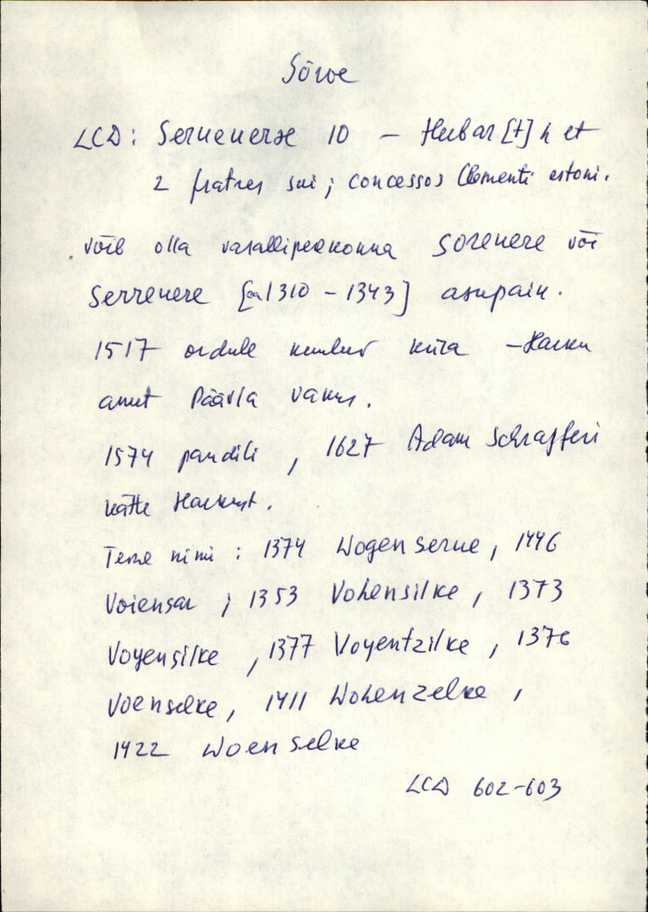 Sõrve
LCD: Serueuerae 10 – Herbar[t] h et
2 fratres sui; concessos Clementi estoni.
võib olla vasallipeakonna Soreuere või
Serreuere [ca 1310 – 1343] asupaik.
1517 ordule kuuluv küla – Harku
amet Päävla vakus.
1574 panditi, 1627 Adam Schrafferi
kätte Harkust.
Teine nimi: 1374 Wogenserue, 1446
Voiensar; 1353 Vohensilke, 1373
Voyensilke, 1377 Voyentzilke, 1376
Voenselke, 1411 Wohenzelke,
1422 Woenselke
LCD 602-603